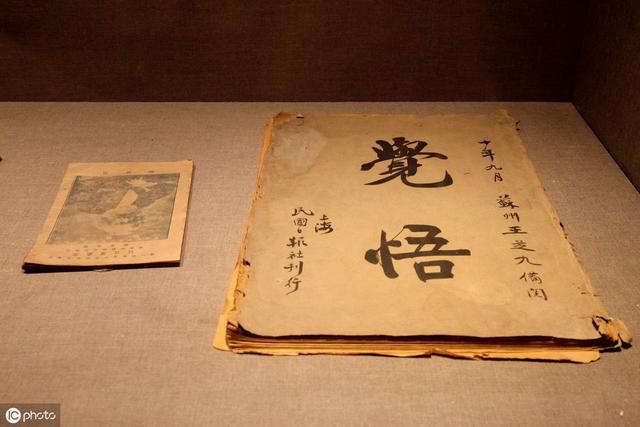 十年九月 蘇州王芝九備閱
覺悟
上海
民國日報社刊行
iC photo